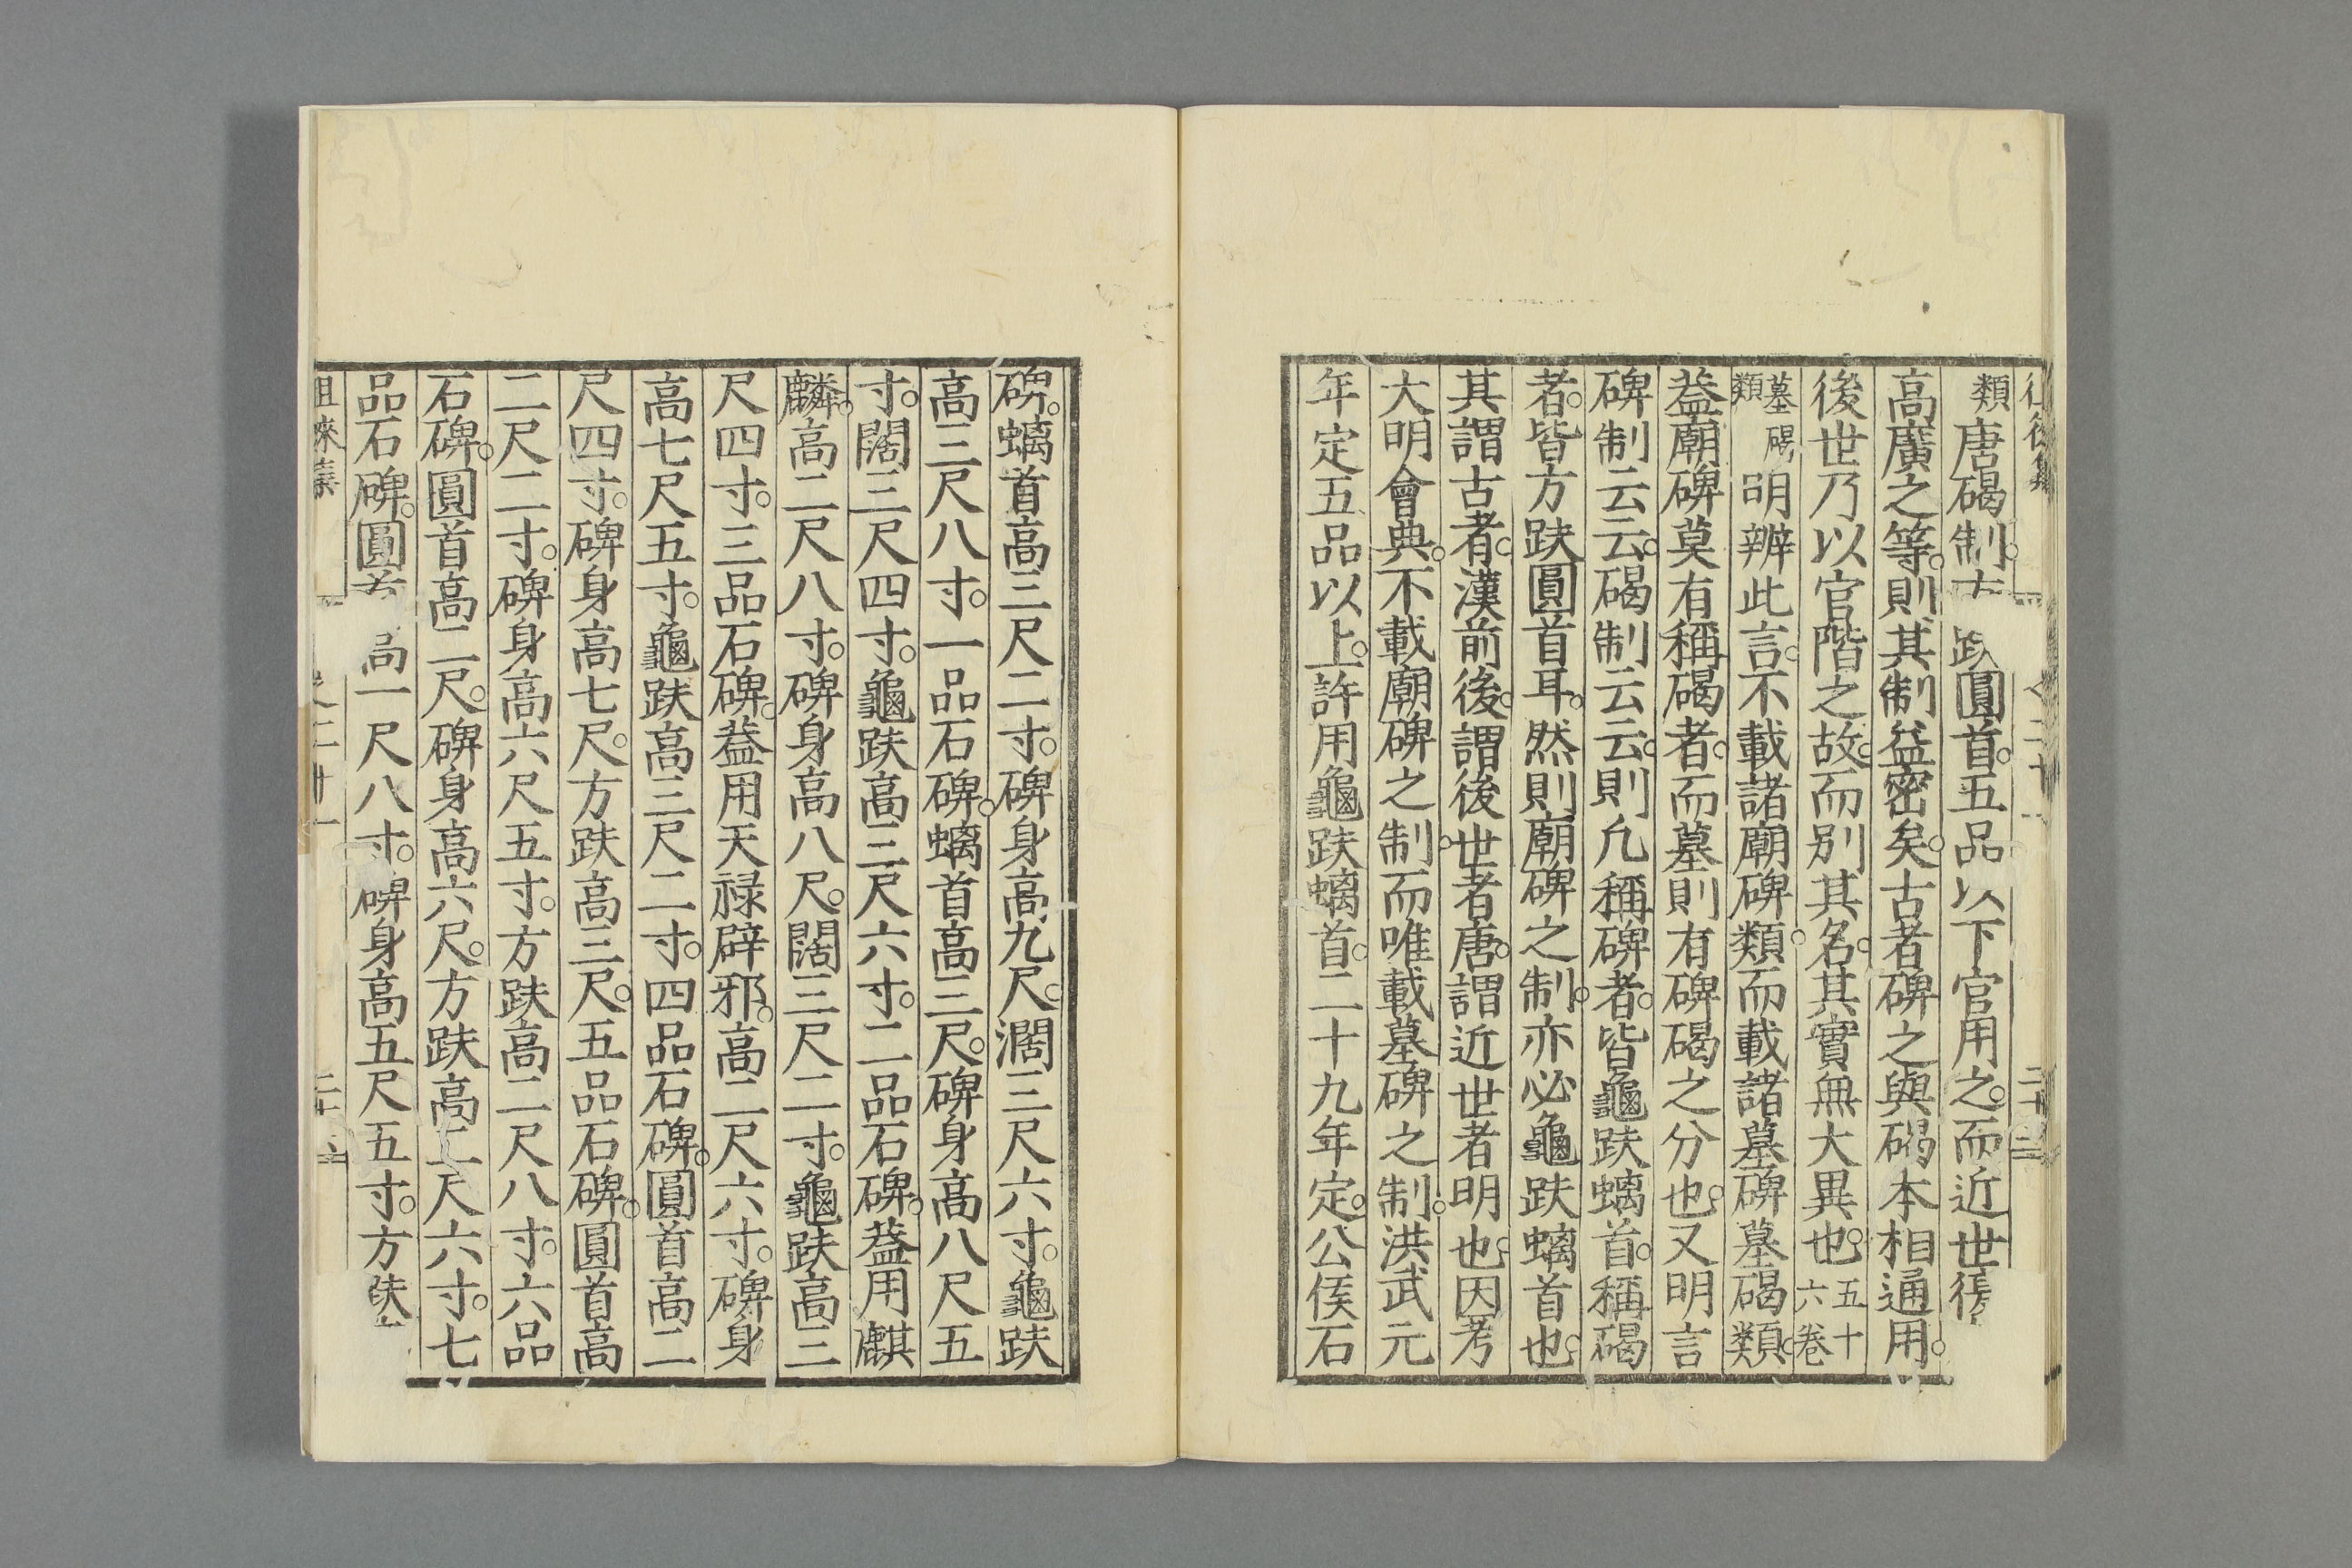 類唐碣制方趺圓首。五品以下官用之。而近世復
高廣之等。則其制益密矣。古者碑之與碣。本相通用。
後世乃以官階之故。而別其名。其實無大異也。五十六卷
墓碣類明辨此言。不載諸廟碑類。而載諸墓碑墓碣類。
葢廟碑莫有稱碣者。而墓則有碑碣之分也。又明言
碑制云云。碣制云云。則凢稱碑者。皆龜趺螭首。稱碣
者。皆方趺圓首耳。然則廟碑之制。亦必龜趺螭首也。
其謂古者。漢前後。謂後世者。唐。謂近世者明也。因考
大明會典。不載廟碑之制。而唯載墓碑之制。洪武元
年定五品以上。許用龜趺螭首。二十九年定。公侯石
碑。螭首高三尺二寸。碑身高九尺。濶三尺六寸。龜趺
高三尺八寸。一品石碑。螭首高三尺。碑身高八尺五
寸。闊三尺四寸。龜趺高三尺六寸。二品石碑。葢用麒
麟。高二尺八寸。碑身高八尺。闊三尺二寸。龜趺高三
尺四寸。三品石碑。葢用天禄辟邪。高二尺六寸。碑身
高七尺五寸。龜趺高三尺二寸。四品石碑。圓首高二
尺四寸。碑身高七尺。方趺高三尺。五品石碑。圓首高
二尺二寸。碑身高六尺五寸。方趺高二尺八寸。六品
石碑。圓首高二尺。碑身高六尺。方趺高二尺六寸。七
品石碑。圓首高一尺八寸。碑身高五尺五寸。方趺
徂徠集 之二十一